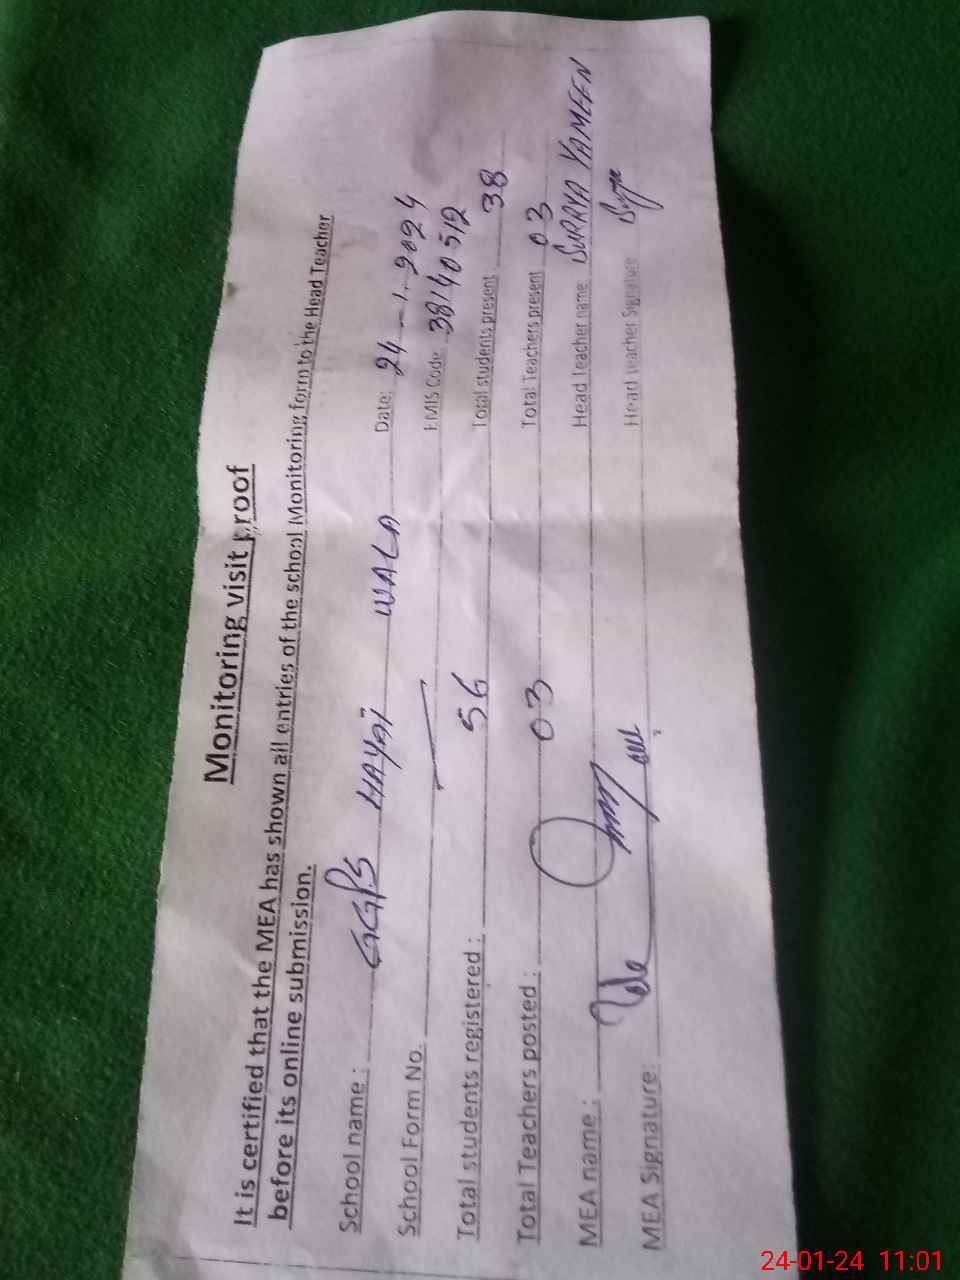 Monitoring visit proof
It is certified that the MEA has shown all entries of the school Monitoring form to the Head Teacher
before its online submission.
School name : GGPS HAYAT WALA Date: 24 - 1 - 2024
School Form No. EMIS Code: 38140512
Total students registered : 56 Total students present 38
Total Teachers posted : 03 Total Teachers present 03
MEA name : Head Teacher name SURRYA YAMEEN
MEA Signature: Head Teacher Signature
24-01-24 11:01